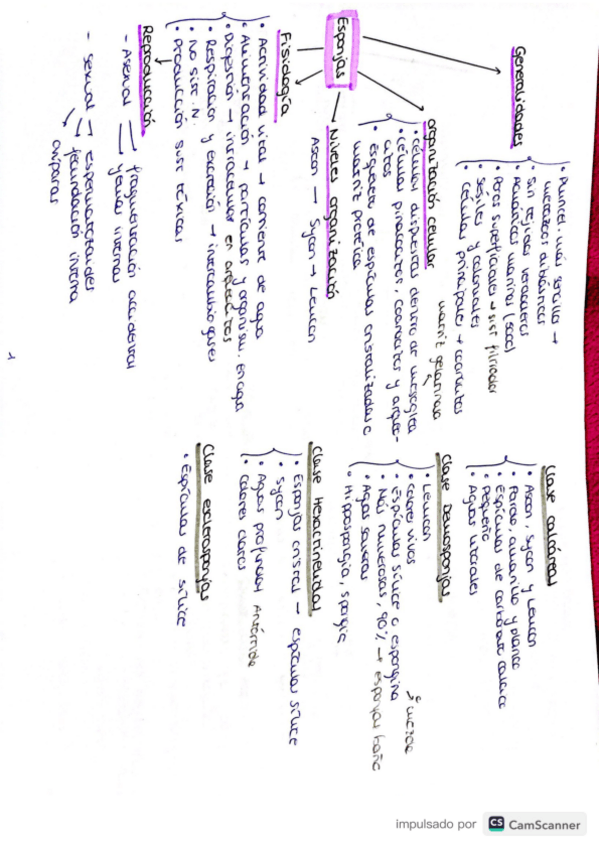 Esponjas
Generalidades
• Pluricel. más sencillos →
metazoos diblásticos
• Sin tejidos verdaderos
• Acuáticos marinos (5000)
• Poros superficiales → sist filtrador
• Sésiles y coloniales
• Células principales → coanocitos
organización celular
matriz gelatinosa
• células dispuestas dentro de mesoglea
• células pinacocitos, coanocitos y arqueo-
citos
• Esqueleto de espículas cristalizadas o
matriz proteica
Niveles organización
Ascon → Sycon → Leucon
Fisiología
• Actividad vital → corriente de agua
• Alimentación → partículas y organism. en agua
• Digestión → intracelular en arqueocitos
• Respiración y excreción → intercambio gases
• No sist. N.
• Producción sust tóxicas
Reproducción
- Asexual → fragmentación accidental
yemas internas
- sexual → espermatozoides
fecundación interna
ovíparas
1
Clase calcáreas
• Ascon, Sycon y Leucon
• Pardo, amarillo y blanco
• Espículas de carbonato cálcico
• Pequeño
• Aguas litorales
Clase Demosponjas
• Leucon
• Colores vivos
• Espículas sílice o espongina
o mezcla
• Más numerosas, 90% → esponjas baño
• Aguas someras
• Hippospongia, spongia
Clase Hexactinelidas
• Esponjas cristal → espículas sílice
• Sycon
• Aguas profundas Antártida
• Colores claros
Clase esclerosponjas
• Espículas de sílice
impulsado por CS CamScanner